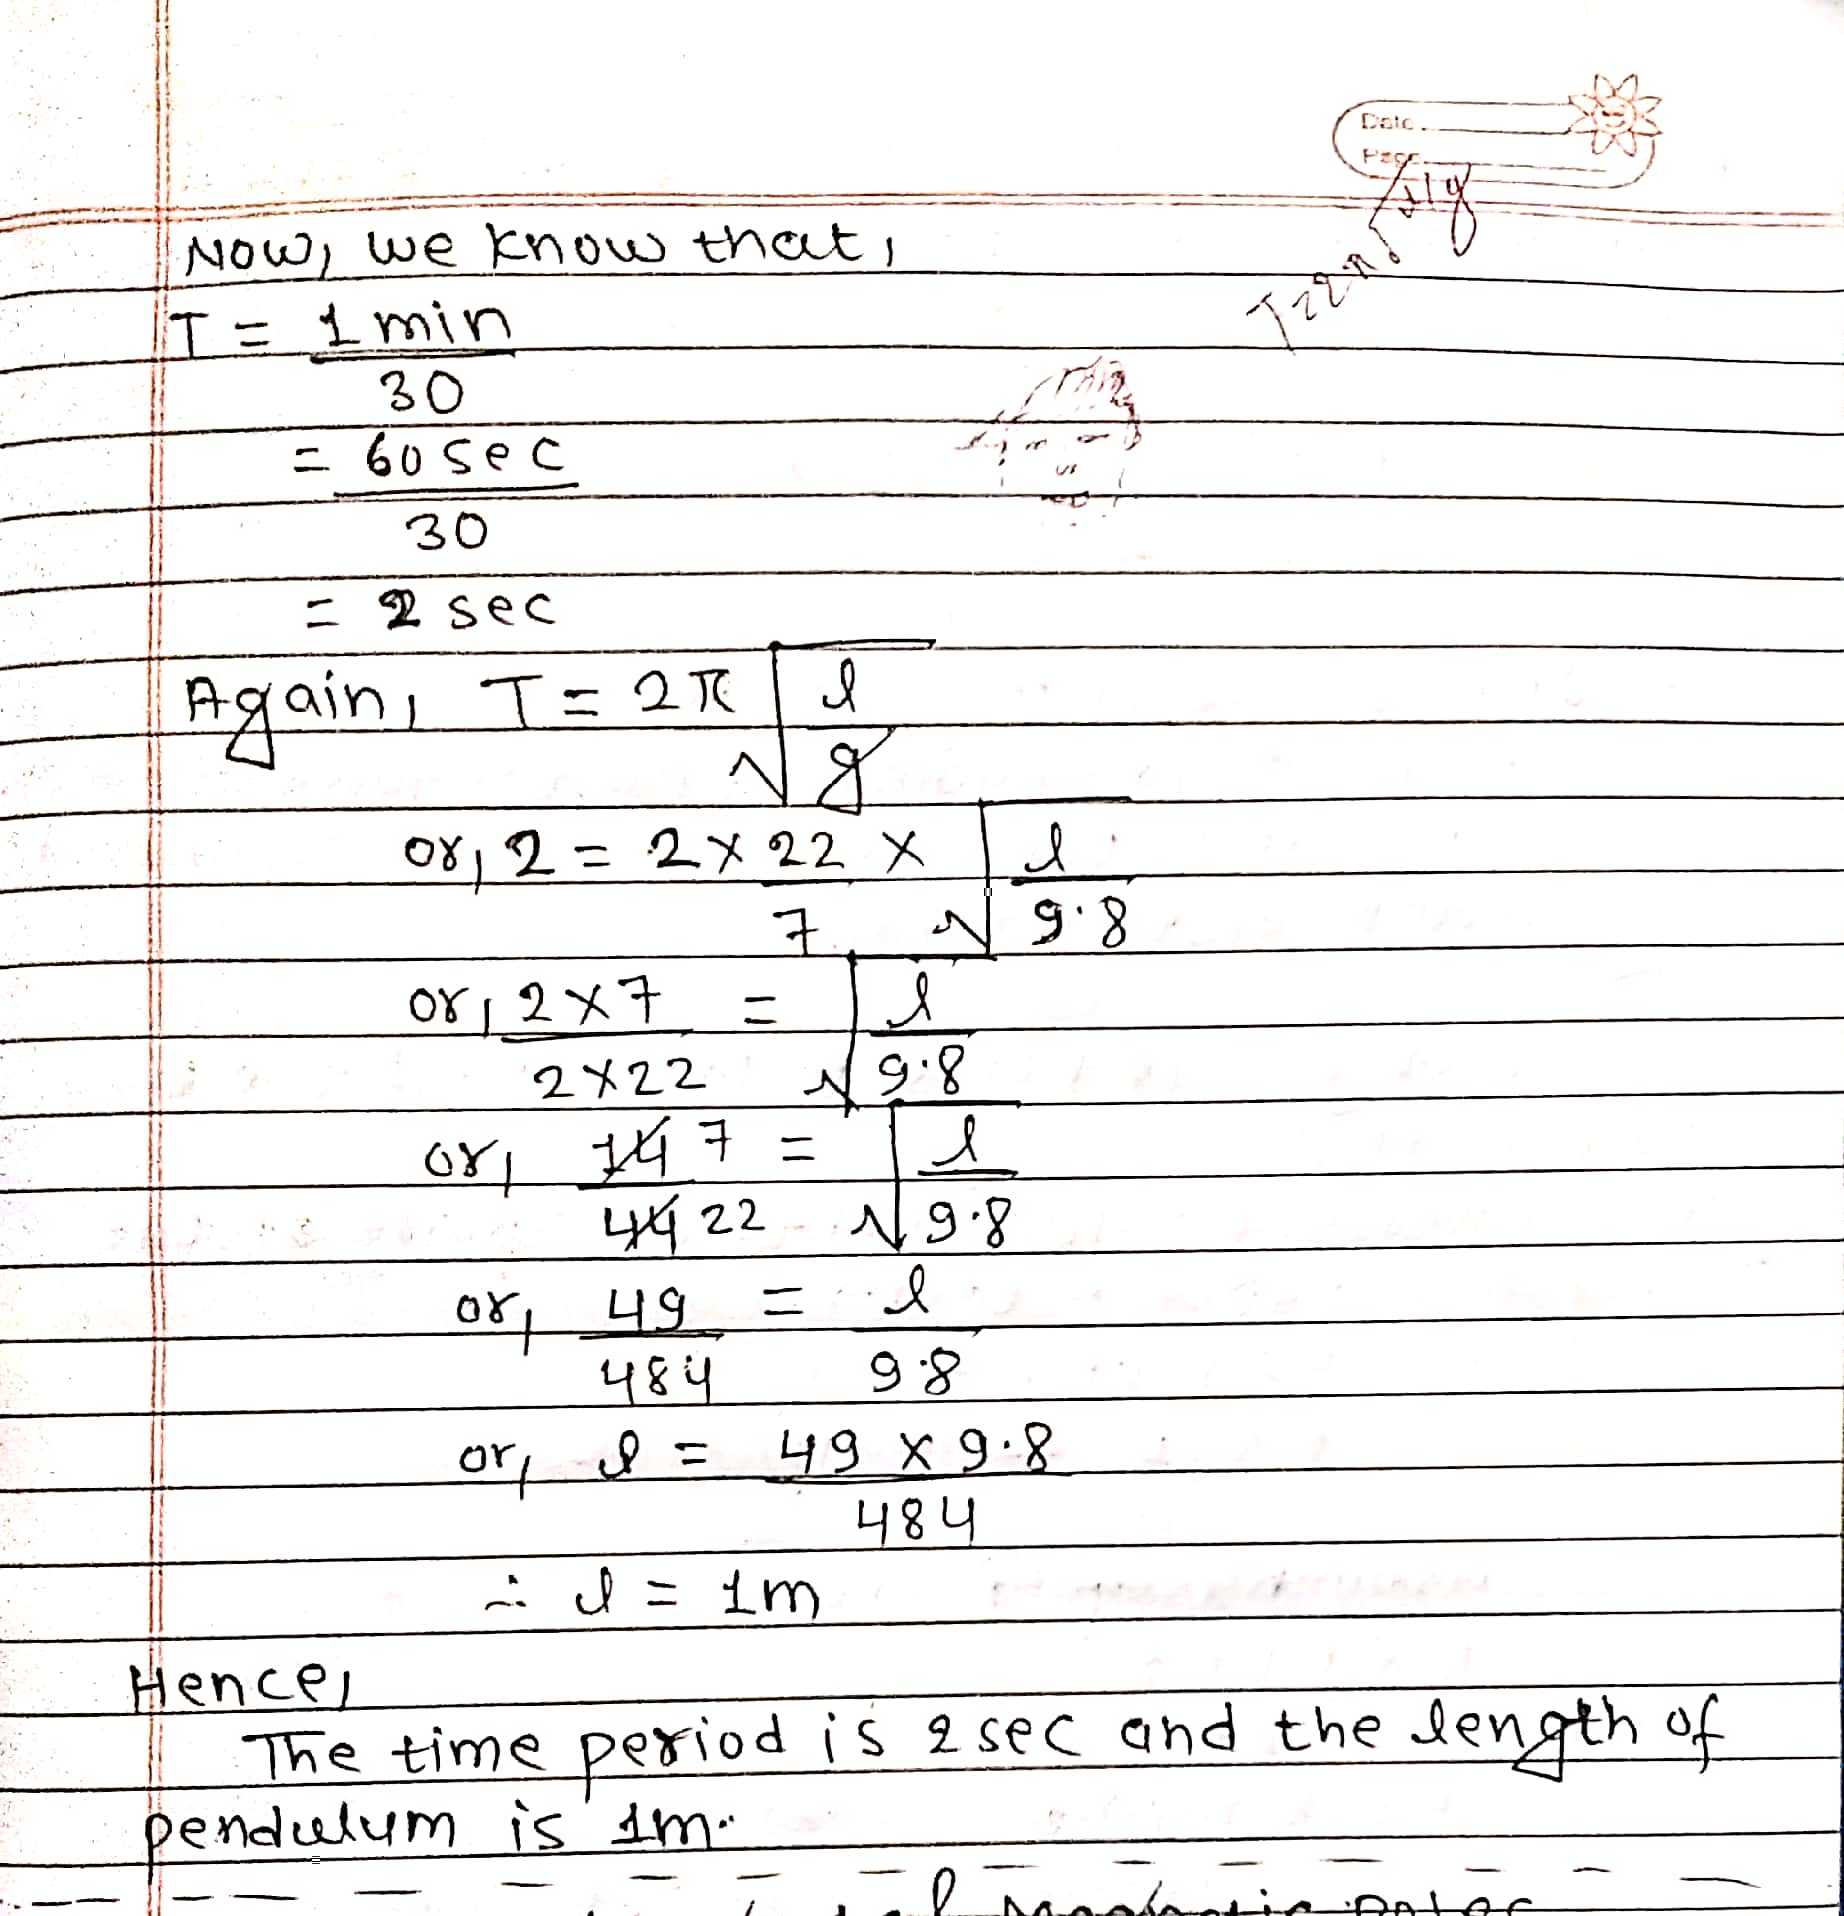 Date
Page
Now, we know that,
T = 1 min
30
= 60 sec
30
= 2 sec
Again, T = 2π √ l
g
or, 2 = 2 × 22 × √ l
7 9.8
or, 2×7 = √ l
2×22 9.8
or, 14 7 = √ l
44 22 9.8
or, 49 = l
484 9.8
or, l = 49 × 9.8
484
∴ l = 1m
Hence,
The time period is 2 sec and the length of
pendulum is 1m.